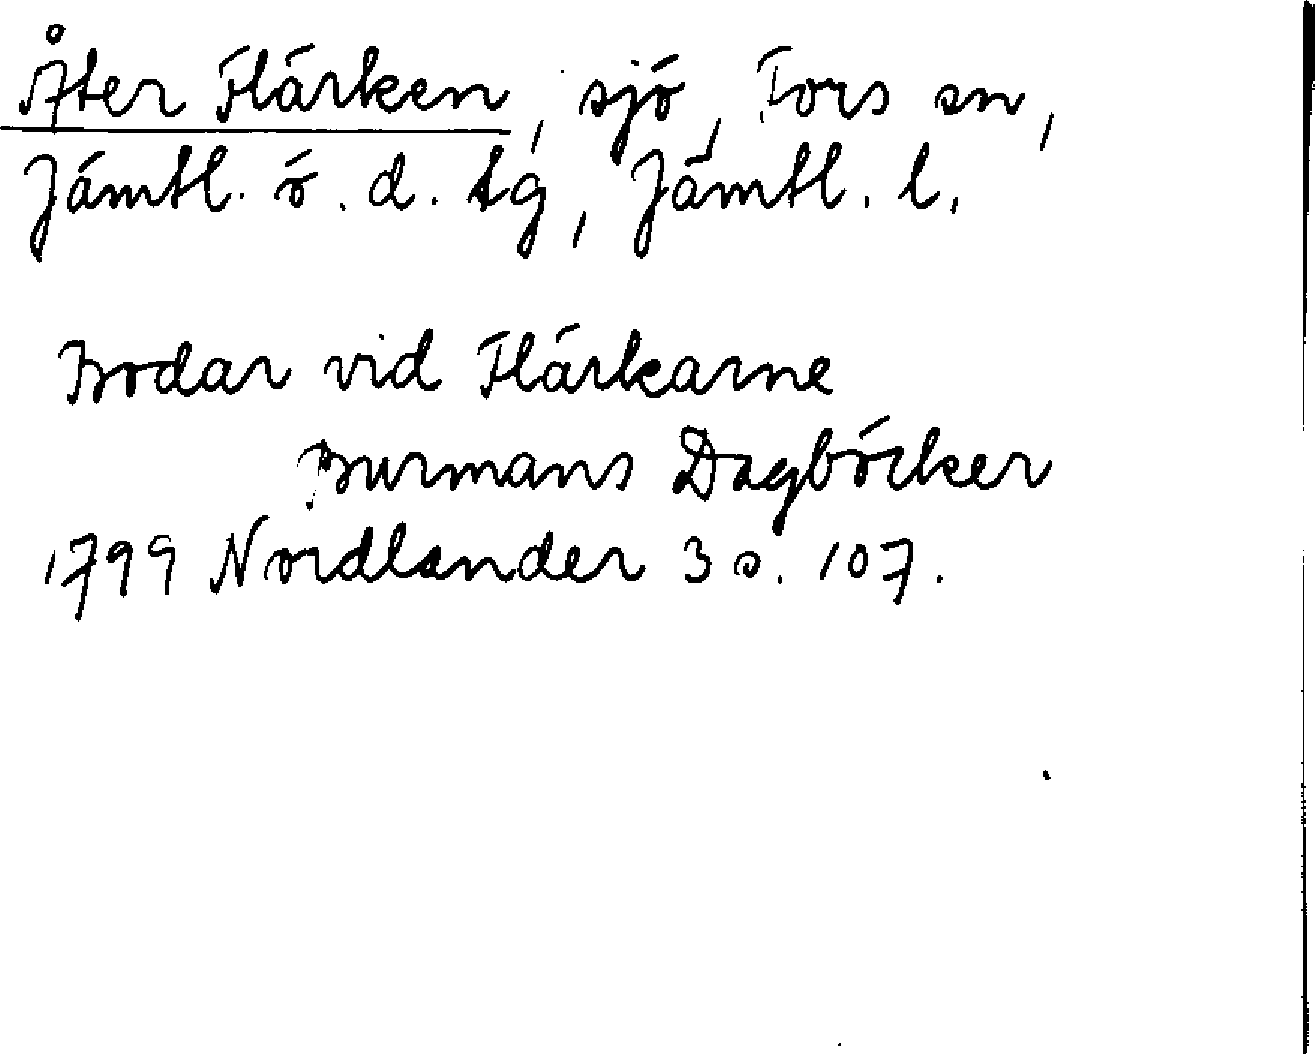 Åter Flärken, sjö, Fors sn,
Jämtl. ö. d. tg, Jämtl. l.
Bodar vid Flärkarne
Burmans Dagböcker
1799 Nordlander 3 s. 107.